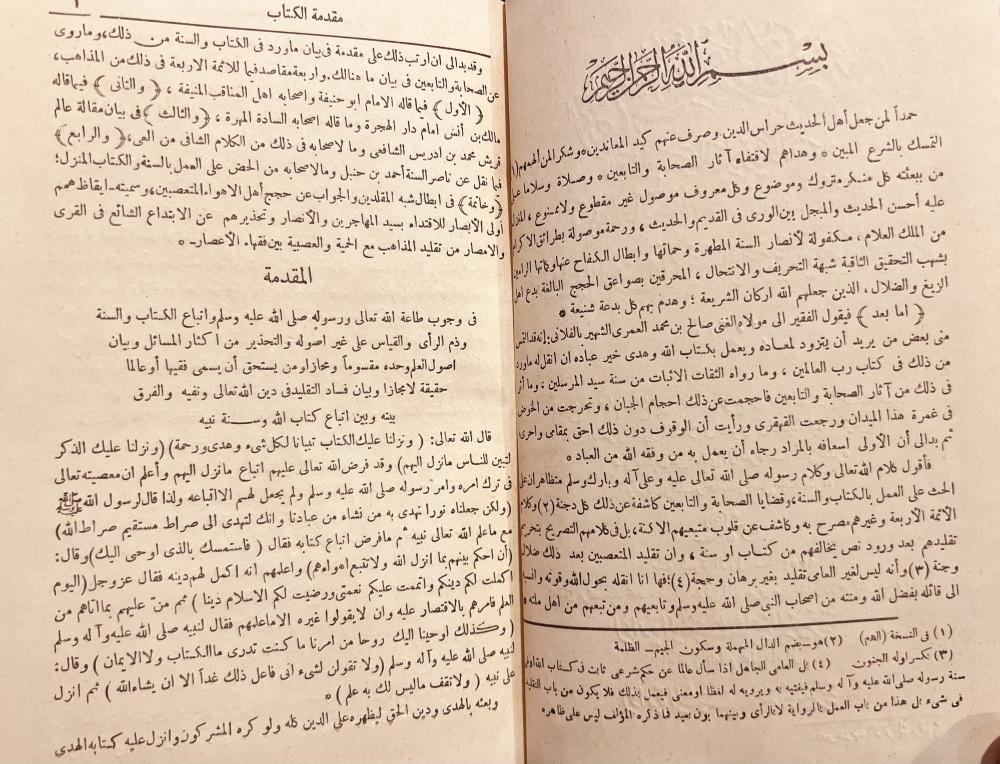 بسم الله الرحمن الرحيم
حمداً لمن جعل أهل الحديث حراس الدين وصرف عنهم كيد المعاندين ٥ وشكرا لمن ألهمهم (١)
التمسك بالشرع المبين ٥ وهداهم لاقتفاء آثار الصحابة والتابعين ٥ وصلاة وسلاما على
من ببعثته كل منكر متروك وموضوع وكل معروف موصول غير مقطوع ولا ممنوع ، المنزل
عليه أحسن الحديث والمبجل بين الورى فى القديم والحديث ، ورحمة موصولة بطرائق الاكرام
من الملك العلام ، مكفولة لأنصار السنة المطهرة وحماتها وابطال الكفاح عنها وكماتها الرامين
بشهب التحقيق الثاقبة شبهة التحريف والانتحال ، المحرقين بصواعق الحجج البالغة بدع اهل
الزيغ والضلال ، الذين جعلهم الله اركان الشريعة ؛ وهدم بهم كل بدعة شنيعة *
﴿ اما بعد ﴾ فيقول الفقير الى مولاه الغنى صالح بن محمد العمرى الشهير بالفلانى : إنه قد التمس
منى بعض من يريد أن يتزود لمعاده ويعمل بكتاب الله وهدى خير عباده ان انقل له ماورد
من ذلك فى كتاب رب العالمين ، وما رواه الثقات الاثبات من سنة سيد المرسلين ، وما أثر
فى ذلك من آثار الصحابة والتابعين فاحجمت عن ذلك احجام الجبان ، وتحرجت من الخوض
فى غمرة هذا الميدان ورجعت القهقرى ورأيت أن الوقوف دون ذلك احق بمقامى واحرى
ثم بدالى أن الأولى اسعافه بالمراد رجاء أن يعمل به من وفقه الله من العباد *
فأقول كلام الله تعالى وكلام رسوله صلى الله تعالى وعليه وعلى آله وبارك وسلم متظاهران على
الحث على العمل بالكتاب والسنة، وقضايا الصحابة والتابعين كاشفة عن ذلك كل دجنة (٢) وكلام
الأئمة الأربعة وغيرهم مصرح به وكاشف عن قلوب متبعيهم الاكنة ، بل فى كلامهم التصريح بتحريم
تقليدهم بعد ورود نص بخالفهم من كتاب او سنة ، وان تقليد المتعصبين بعد ذلك ضلال
وجنة (٣) وأنه ليس لغير العامى تقليد بغير برهان وحجة (٤) ؛ فها انا انقله بحول الله وقوته وانسبه
الى قائله بفضل الله ومنته من اصحاب النبى صلى الله عليه وسلم وتابعيهم ومن تبعهم من اهل ملته *
(١) فى النسخة (الهم) (٢) هو بضم الدال المهملة وسكون الجيم ـ الظلمة
(٣) بكسر اوله الجنون (٤) بل العامى الجاهل اذا سأل عالما عن حكم شرعى ثابت فى كتاب الله أو فى
سنة رسوله صلى الله عليه وآله وسلم فيفتيه به ويرويه له لفظا او معنى فيعمل بذلك فلا يكون من باب التقليد
فى شىء بل هذا من باب العمل بالرواية لا بالرأى وبينهما بون بعيد فما ذكره المؤلف ليس على ظاهره
مقدمة الكتاب
وقد بدالى ان ارتب ذلك على مقدمة فى بيان ماورد فى الكتاب والسنة من ذلك، وماروى
عن الصحابة والتابعين فى بيان ما هنالك. واربعة مقاصد فيما للائمة الاربعة فى ذلك من المذاهب،
﴿ الأول ﴾ فيما قاله الامام ابو حنيفة واصحابه اهل المناقب المنيفة ، ﴿ والثانى ﴾ فيما قاله
مالك بن أنس امام دار الهجرة وما قاله اصحابه السادة المهرة ، ﴿ والثالث ﴾ فى بيان مقالة عالم
قريش محمد بن ادريس الشافعى وما لاصحابه فى ذلك من الكلام الشافى من العى، ﴿ والرابع ﴾
فيما نقل عن ناصر السنة أحمد بن حنبل وما لاصحابه من الحض على العمل بالسنة والكتاب المنزل؛
﴿ وخاتمة ﴾ فى ابطال شبه المقلدين والجواب عن حجج أهل الاهواء المتعصبين، وسميته ـ ايقاظ همم
أولى الأبصار للاقتداء بسيد المهاجرين والأنصار وتحذيرهم عن الابتداع الشائع فى القرى
والامصار من تقليد المذاهب مع الحمية والعصبية بين فقهاء الأعصار ـ *
المقدمة
فى وجوب طاعة الله تعالى ورسوله صلى الله عليه وسلم واتباع الكتاب والسنة
وذم الرأى والقياس على غير اصوله والتحذير من اكثار المسائل وبيان
اصول العلم وحده مقسوماً ومجازا ومن يستحق أن يسمى فقيها أو عالما
حقيقة لا مجازا وبيان فساد التقليد فى دين الله تعالى ونفيه والفرق
بينه وبين اتباع كتاب الله وسنة نبيه
قال الله تعالى: ( ونزلنا عليك الكتاب تبيانا لكل شىء وهدى ورحمة) (ونزلنا عليك الذكر
لتبين للناس مانزل اليهم) وقد فرض الله تعالى عليهم اتباع مانزل اليهم وأعلم ان معصيته تعالى
فى ترك امره وامر رسوله صلى الله عليه وسلم ولم يجعل لهم الا اتباعه ولذا قال لرسول الله ﷺ
(ولكن جعلناه نورا نهدى به من نشاء من عبادنا وانك لتهدى الى صراط مستقيم صراط الله)
مع ماعلم الله تعالى نبيه ثم مافرض اتباع كتابه فقال ( فاستمسك بالذى اوحى اليك) وقال :
(أن احكم بينهم بما انزل الله ولا تتبع اهواءهم) واعلمهم انه اكمل لهم دينه فقال عز وجل (اليوم
اكملت لكم دينكم واتممت عليكم نعمتى ورضيت لكم الاسلام دينا ) ثم منّ عليهم بما اتاهم من
العلم فامرهم بالاقتصار عليه وان لايقولوا غيره الا ماعلمهم فقال لنبيه صلى الله عليه وآله وسلم
( وكذلك اوحينا اليك روحا من امرنا ما كنت تدرى ما الكتاب ولا الايمان ) وقال :
لنبيه صلى الله عليه وآله وسلم (ولا تقولن لشىء انى فاعل ذلك غداً الا ان يشاء الله ) ثم انزل
على نبيه ( ولا تقف ما ليس لك به علم ) *
وبعثه بالهدى ودين الحق ليظهره على الدين كله ولو كره المشركون وانزل عليه كتابه الهدى